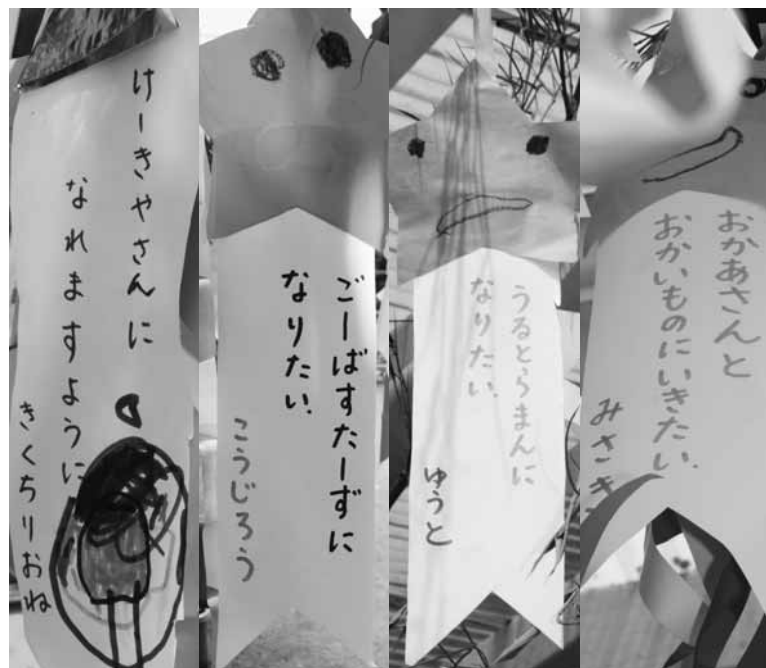 けーきやさんに
なれますように
きくちりおね
ごーばすたーずに
なりたい.
こうじろう
うるとらまんに
なりたい.
ゆうと
おかあさんと
おかいものにいきたい.
みさき